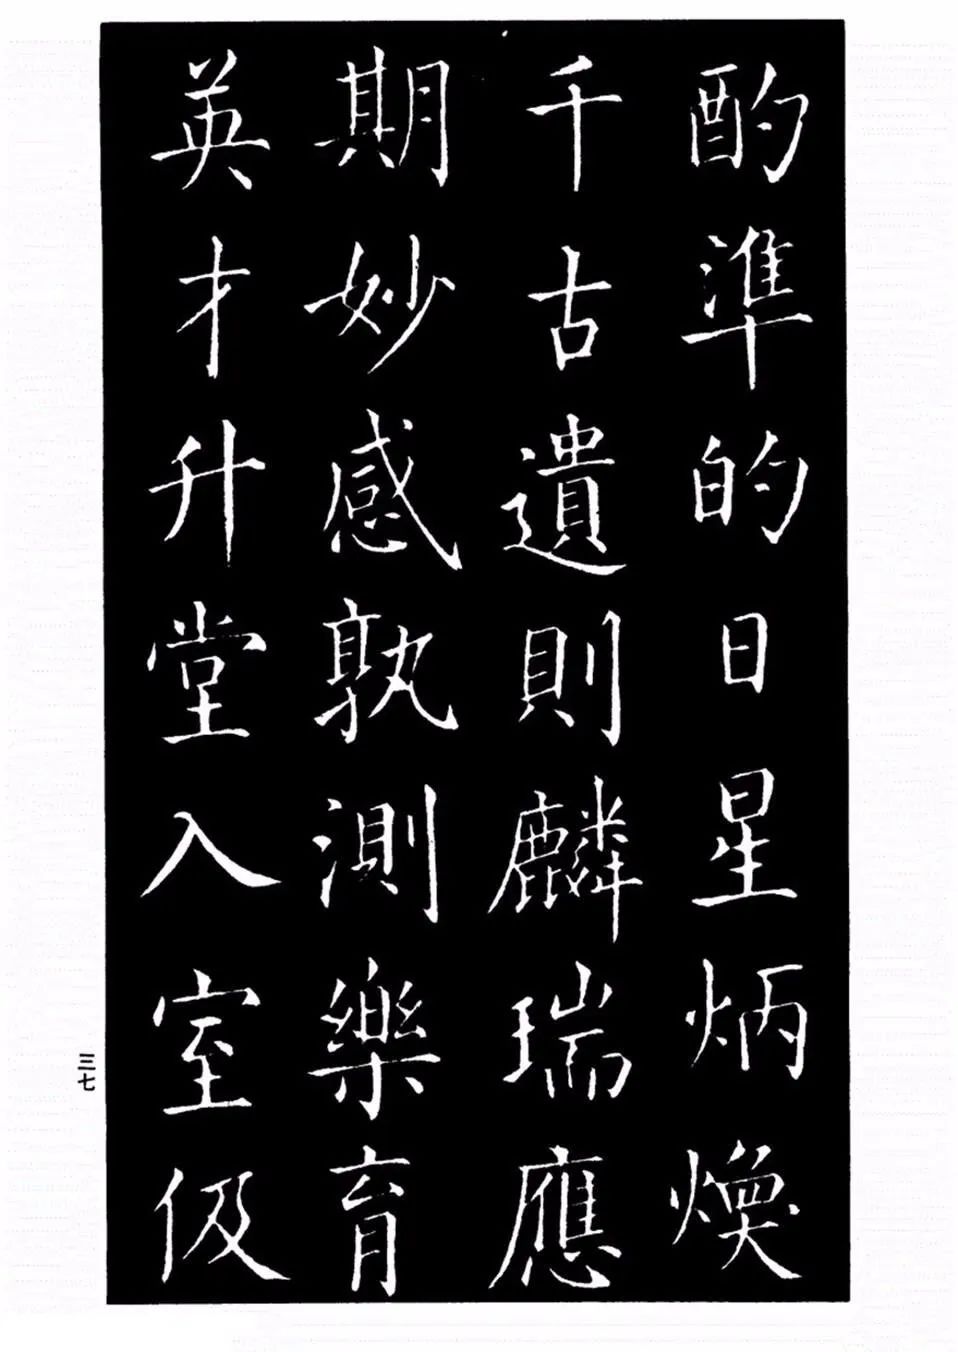 酌準的日星炳煥
千古遺則麟瑞應
期妙感孰測樂育
英才升堂入室伋
三七